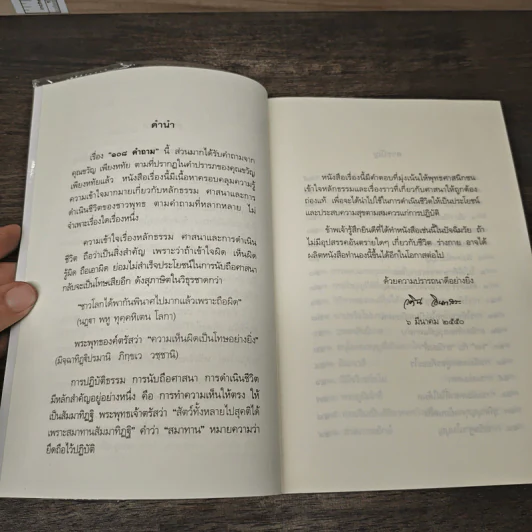 คำนำ
เรื่อง "๑๐๘ คำถาม" นี้ ส่วนมากได้รับคำถามจาก
คุณขวัญ เพียงหทัย ตามที่ปรากฏในคำปรารภของคุณขวัญ
เพียงหทัยแล้ว หนังสือเรื่องนี้มีเนื้อหาครอบคลุมความรู้
ความเข้าใจมากมายเกี่ยวกับหลักธรรม ศาสนาและการ
ดำเนินชีวิตของชาวพุทธ ตามคำถามที่หลากหลาย ไม่
จำเพาะเรื่องใดเรื่องหนึ่ง
ความเข้าใจเรื่องหลักธรรม ศาสนาและการดำเนิน
ชีวิต ถือว่าเป็นสิ่งสำคัญ เพราะว่าถ้าเข้าใจผิด เห็นผิด
รู้ผิด ถือเอาผิด ย่อมไม่สำเร็จประโยชน์ในการนับถือศาสนา
กลับจะเป็นโทษเสียอีก ดังสุภาษิตในวิธุรชาดกว่า
"ชาวโลกได้พากันพินาศไปมากแล้วเพราะถือผิด"
(นฏฺฐา พหู ทุคฺคหิเตน โลกา)
พระพุทธองค์ตรัสว่า "ความเห็นผิดเป็นโทษอย่างยิ่ง"
(มิจฺฉาทิฏฺฐิปรมานิ ภิกฺขเว วชฺชานิ)
การปฏิบัติธรรม การนับถือศาสนา การดำเนินชีวิต
มีหลักสำคัญอยู่อย่างหนึ่ง คือ การทำความเห็นให้ตรง ให้
เป็นสัมมาทิฏฐิ พระพุทธเจ้าตรัสว่า "สัตว์ทั้งหลายไปสุคติได้
เพราะสมาทานสัมมาทิฏฐิ" คำว่า "สมาทาน" หมายความว่า
ยึดถือไว้ปฏิบัติ
หนังสือเรื่องนี้มีคำตอบที่มุ่งเน้นให้พุทธศาสนิกชน
เข้าใจหลักธรรมและเรื่องราวที่เกี่ยวกับศาสนาให้ถูกต้อง
ถ่องแท้ เพื่อจะได้นำไปใช้ในการดำเนินชีวิตให้เป็นประโยชน์
และประสบความสุขตามสมควรแก่การปฏิบัติ
ข้าพเจ้ารู้สึกยินดีที่ได้ทำหนังสือเช่นนี้ในปัจฉิมวัย ถ้า
ไม่มีอุปสรรคอันตรายใดๆ เกี่ยวกับชีวิต ร่างกาย อาจได้
ผลิตหนังสือทำนองนี้ขึ้นได้อีกในโอกาสต่อไป
ด้วยความปรารถนาดีอย่างยิ่ง
๖ มีนาคม ๒๕๕๐